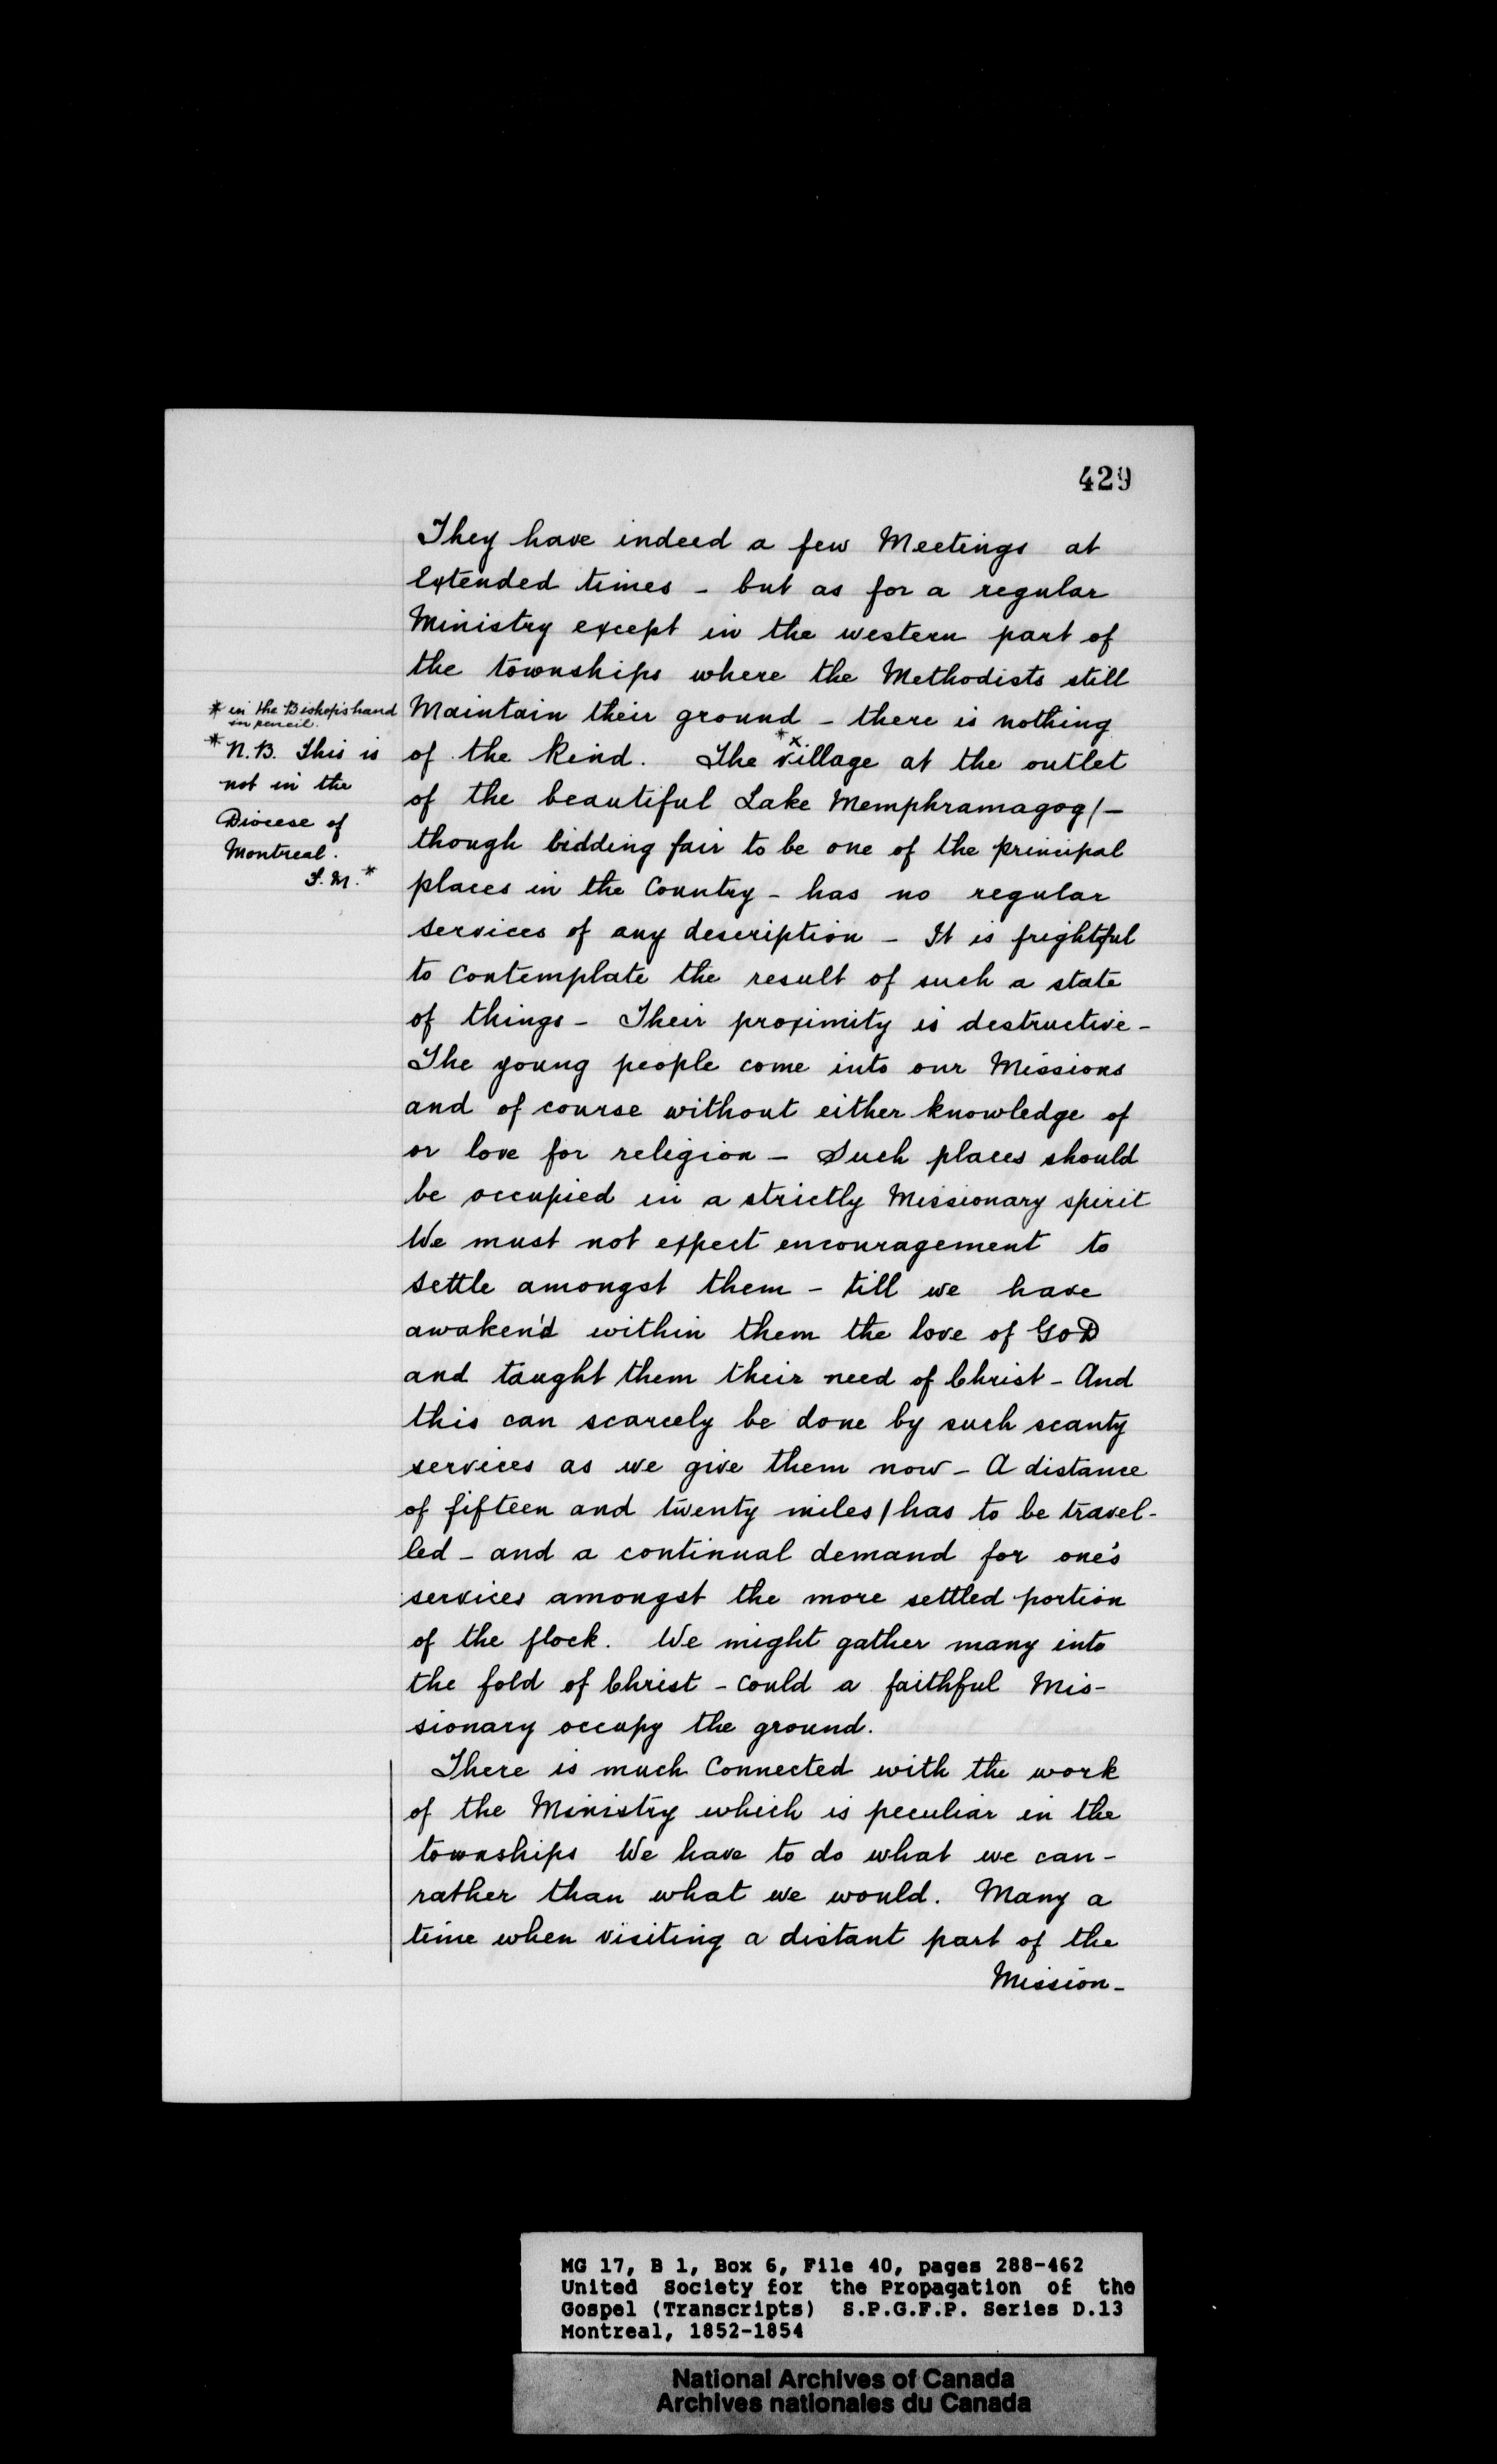 429
They have indeed a few Meetings at
Extended times - but as for a regular
Ministry except in the western part of
the townships where the Methodists still
Maintain their ground - there is nothing
of the kind. The *x village at the outlet
of the beautiful Lake Memphramagog/-
though bidding fair to be one of the principal
places in the Country - has no regular
services of any description - It is frightful
to contemplate the result of such a state
of things - Their proximity is destructive -
The young people come into our Missions
and of course without either knowledge of
or love for religion - Such places should
be occupied in a strictly Missionary spirit
We must not expect encouragement to
settle amongst them - till we have
awaken'd within them the love of GoD
and taught them their need of Christ - And
this can scarcely be done by such scanty
services as we give them now - A distance
of fifteen and twenty miles/has to be travel-
led - and a continual demand for one's
services amongst the more settled portion
of the flock. We might gather many into
the fold of Christ - could a faithful Mis-
sionary occupy the ground.
There is much Connected with the work
of the Ministry which is peculiar in the
townships We have to do what we can -
rather than what we would. Many a
time when visiting a distant part of the
Mission -
* in the Bishop's hand
in pencil.
* N.B. This is
not in the
Diocese of
Montreal.
F. M.*
MG 17, B 1, Box 6, File 40, pages 288-462
United Society for the Propagation of the
Gospel (Transcripts) S.P.G.F.P. Series D.13
Montreal, 1852-1854
National Archives of Canada
Archives nationales du Canada